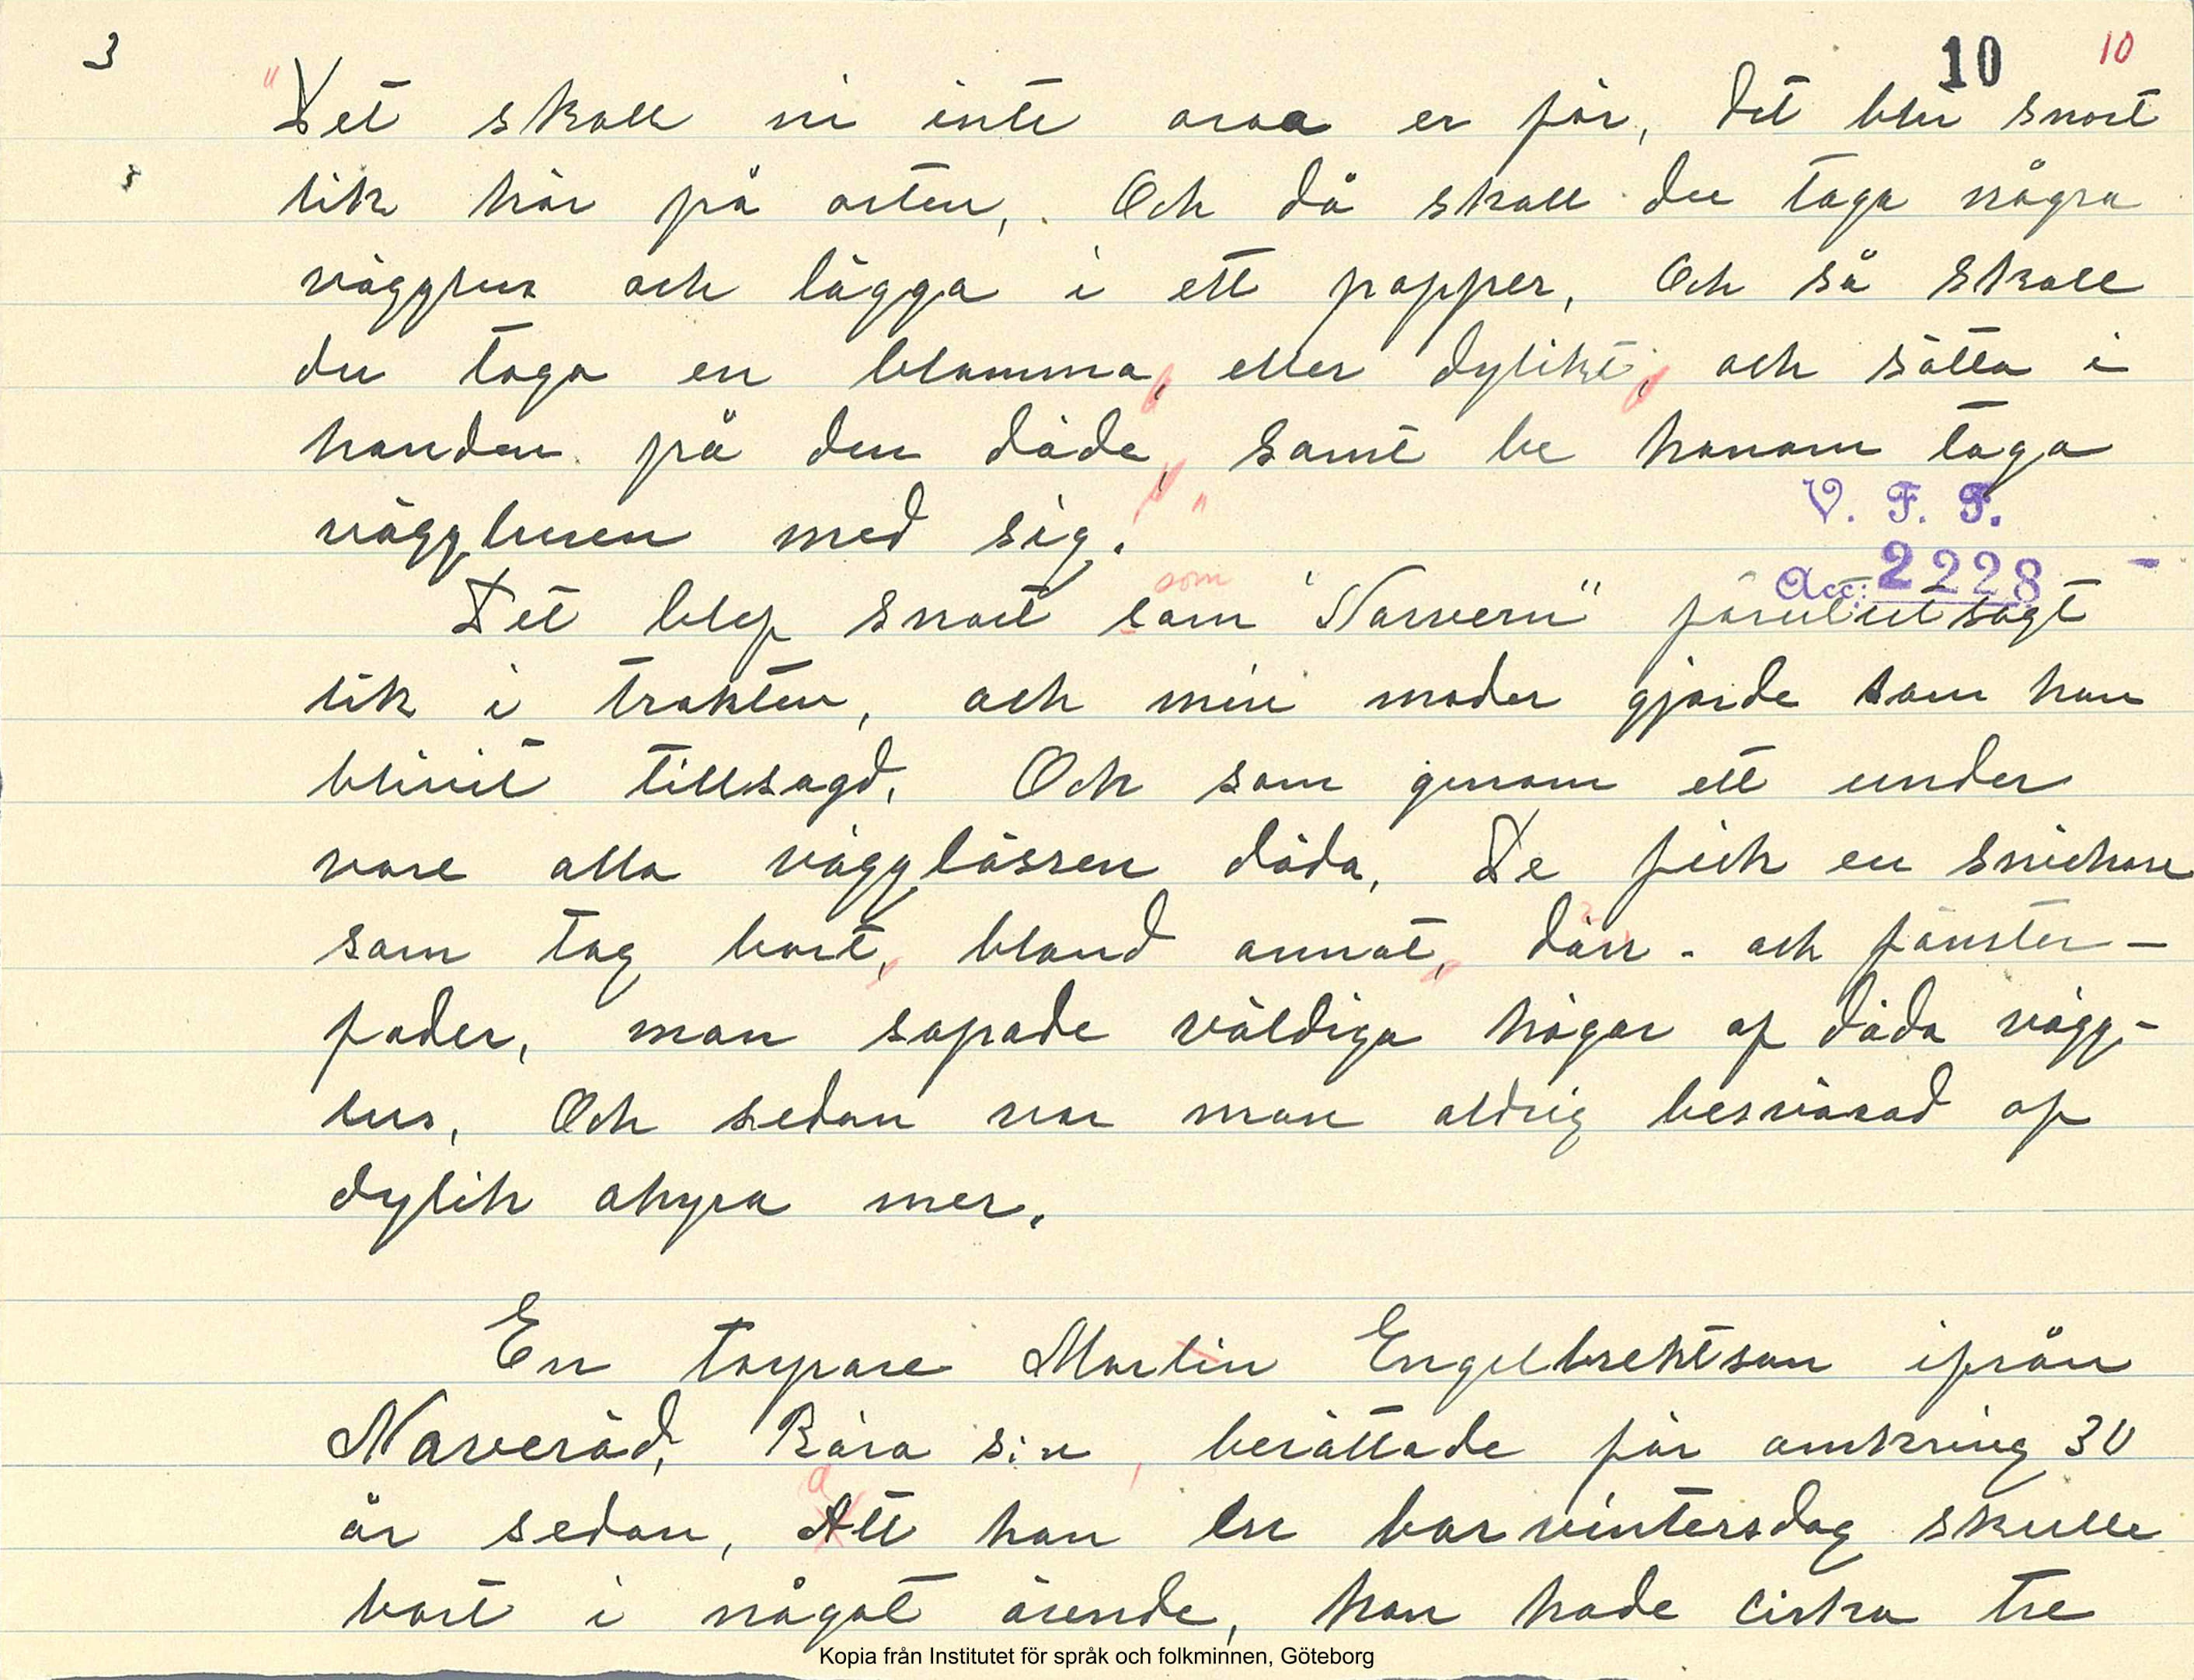 3 10 10
"Det skall ni inte oroa er för, det blir snart
lik här på orten, Och då skall du taga några
vägglus och lägga i ett papper, Och så skall
du taga en blomma, eller dylikt, och sätta i
handen på den döde, samt be honom taga
vägglusen med sig."
V. F. F.
Acc: 2228
som
Det blef snart som "Narvern" förut utsagt
lik i trakten, och min moder gjorde som hon
blivit tillsagd. Och som genom ett under
vore alla vägglössen döda, De fick en snickare
som tog bort, bland annat, dörr- och fönster-
foder, man sopade väldiga högar af döda vägg-
lus, Och sedan var man aldrig besvärad af
dylik ohyra mer.
En torpare Martin Engelbrektson ifrån
Naveröd, Röra s:n, berättade för omkring 30
a
år sedan, Att han en barvintersdag skulle
bort i något ärende, han hade cirka tre
Kopia från Institutet för språk och folkminnen, Göteborg